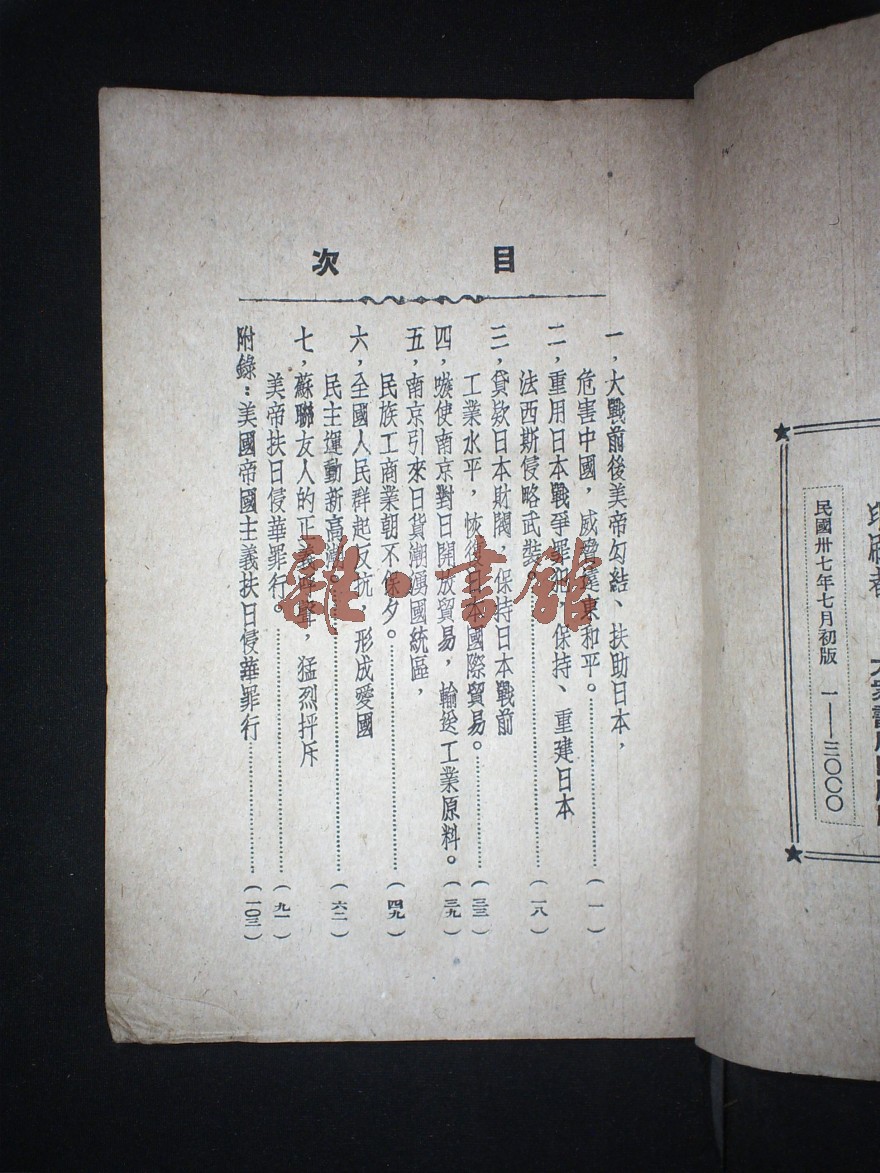 目次
一，大戰前後美帝勾結、扶助日本，
危害中國，威脅遠東和平。………（一）
二，重用日本戰爭罪犯，保持、重建日本
法西斯侵略武裝………（一八）
三，貸款日本財閥，保持日本戰前
工業水平，恢復日本國際貿易。………（三三）
四，嗾使南京對日開放貿易，輸送工業原料。（三九）
五，南京引來日貨潮湧國統區，
民族工商業朝不保夕。………（四九）
六，全國人民群起反抗，形成愛國
民主運動新高潮。………（六二）
七，蘇聯友人的正義呼聲，猛烈抨斥
美帝扶日侵華罪行。………（九一）
附錄：美國帝國主義扶日侵華罪行………（一〇三）
民國卅七年七月初版 一——三〇〇〇
雜·書館